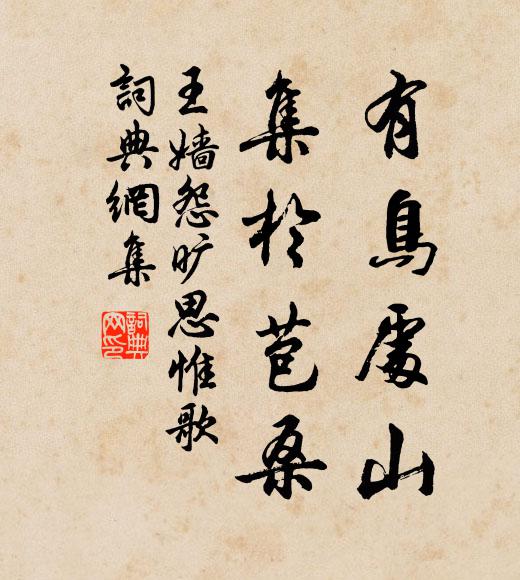 有鳥處山
集於苞桑
王嬙怨旷思惟歌
詞典網集
詞典
网印